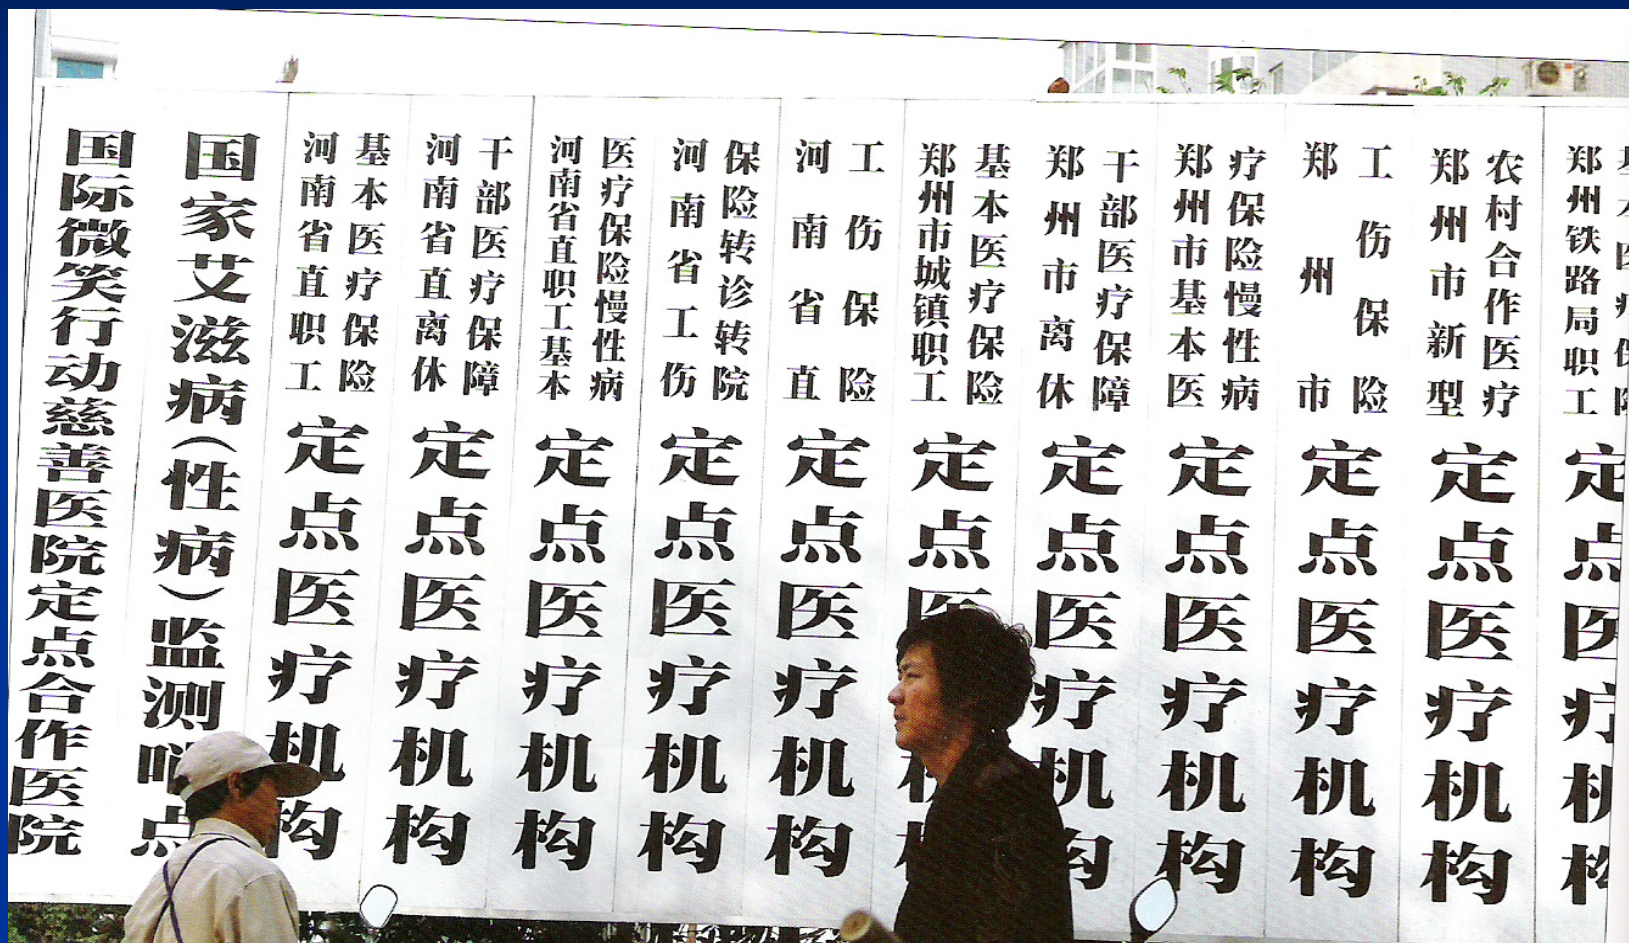 国际微笑行动慈善医院定点合作医院
国家艾滋病（性病）监测哨点
河南省直职工
基本医疗保险
定点医疗机构
河南省直离休
干部医疗保障
定点医疗机构
河南省直职工基本
医疗保险慢性病
定点医疗机构
河南省工伤
保险转诊转院
定点医疗机构
河南省直
工伤保险
定点医疗机构
郑州市城镇职工
基本医疗保险
定点医
郑州市离休
干部医疗保障
定点医疗机构
郑州市基本医
疗保险慢性病
定点医疗机构
郑州市
工伤保险
定点医疗机构
郑州市新型
农村合作医疗
定点医疗机构
郑州铁路局职工
基本医疗保险
定点医疗机构